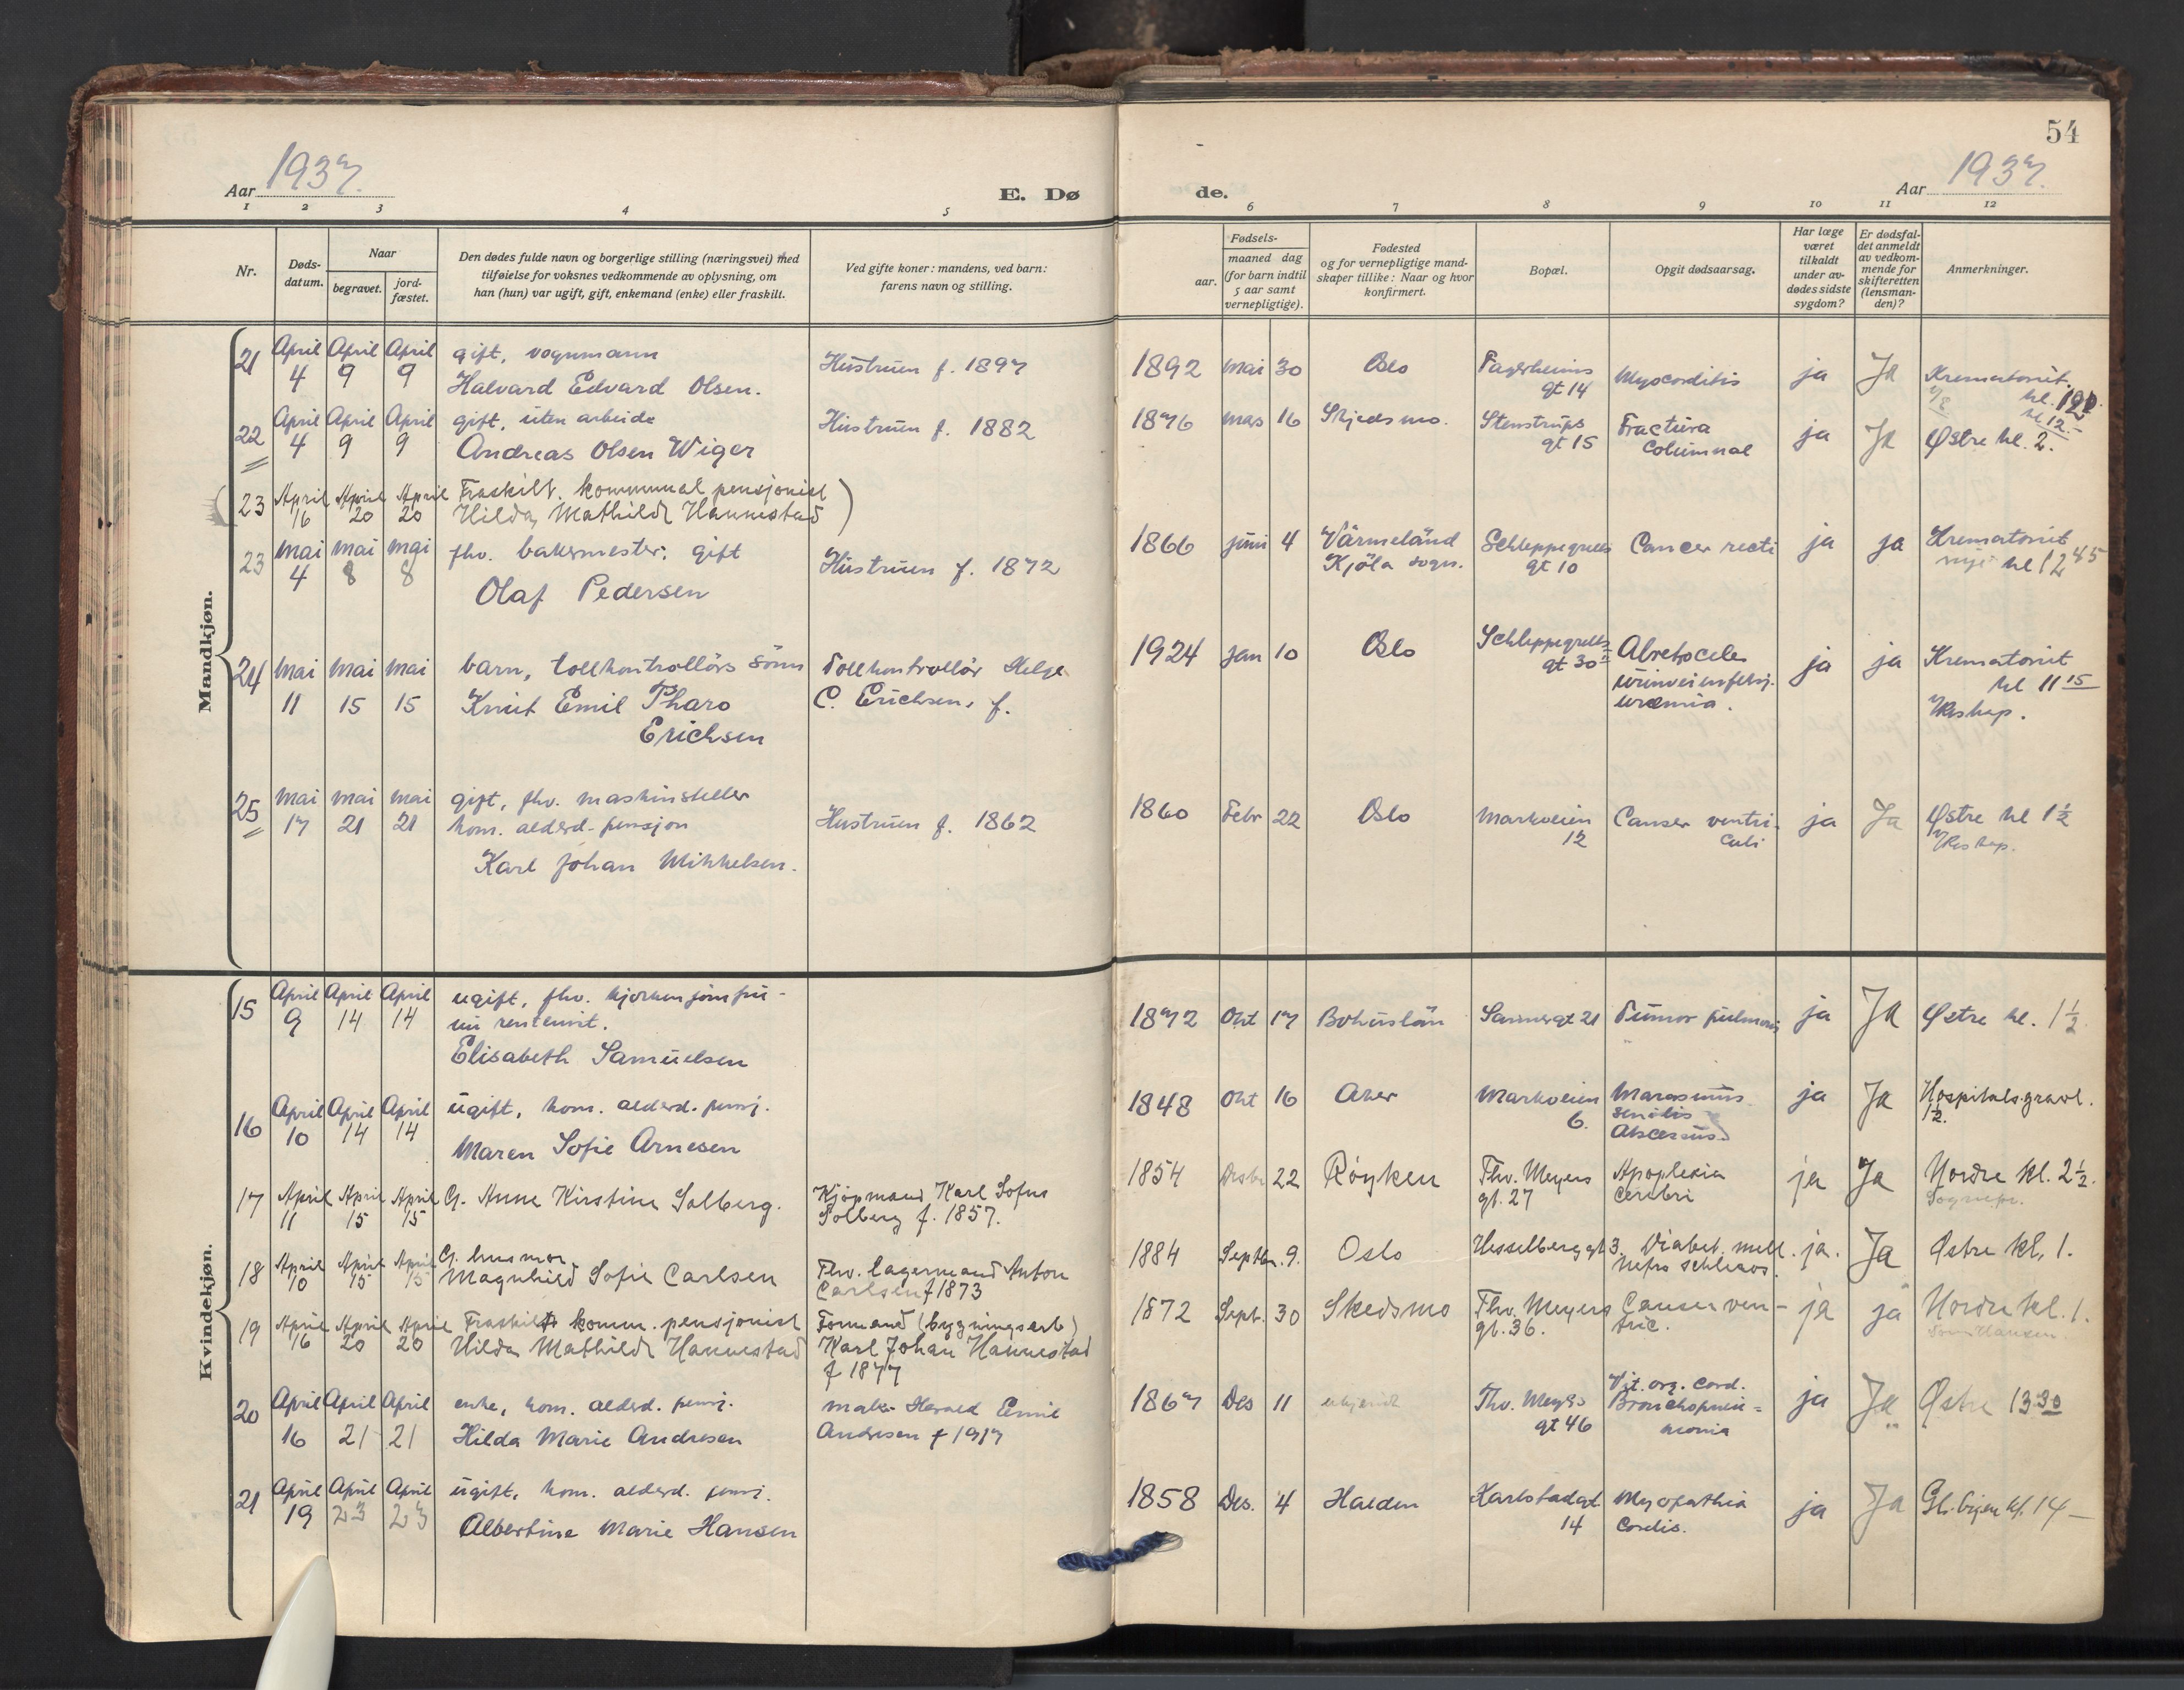 54
Aar 1937.
E. Dø
de.
Aar 1937.
1 2 3 4 5 6 7 8 9 10 11 12
Nr.
Døds-
datum.
Naar
begravet.
jord-
fæstet.
Den dødes fulde navn og borgerlige stilling (næringsvei) med
tilføielse for voksnes vedkommende av oplysning, om
han (hun) var ugift, gift, enkemand (enke) eller fraskilt.
Ved gifte koner: mandens, ved barn:
farens navn og stilling.
Fødsels-
aar.
maaned dag
(for barn indtil
5 aar samt
vernepligtige).
Fødested
og for vernepligtige mand-
skaper tillike: Naar og hvor
konfirmert.
Bopæl.
Opgit dødsaarsag.
Har læge
været
tilkaldt
under av-
dødes sidste
sygdom?
Er dødsfal-
det anmeldt
av vedkom-
mende for
skifteretten
(lensman-
den)?
Anmerkninger.
Mandkjøn.
21 April April April gift, vognmann
4 9 9 Halvard Edvard Olsen.
Hustruen f. 1897
1892 mai 30 Oslo Fagerheims
gt 14
Myocorditis ja Ja Krematoriet
kl. 12.
22 April April April gift, uten arbeide
4 9 9 Andreas Olsen Wiger
Hustruen f. 1882
1876 mars 16 Skjedsmo. Stenstrups
gt 15
Fractura
Columnal
ja Ja Østre kl. 2.
23 April April April Fraskilt. kommunal pensjonist
16 20 20 Hilda Mathilde Hannestad
23 mai mai mai fhv. bakermester, gift
4 8 8 Olaf Pedersen
Hustruen f. 1872
1866 juni 4 Värmeländ
Kjöla sogn.
Schleppegrells
gt 10
Cancer recti ja ja Krematoriet
nye kl 12 45
24 mai mai mai barn, tollkontrollörs sönn
11 15 15 Knut Emil Pharo
Erichsen
Tollkontrollör Helge
C. Erichsen, f.
1924 jan 10 Oslo Schleppegrells
gt 30
urinveisinfeksj.
uræmia.
ja ja Krematoriet
kl 11 15
V/Reskap.
25 mai mai mai gift, fhv. maskinsteller
17 21 21 kom. alderd. pensjon
Karl Johan Mikkelsen.
Hustruen f. 1862
1860 Febr 22 Oslo Markveien
12
Canser ventri-
culi
ja Ja Østre kl 1 1/2
V/Reskap.
Kvindekjøn.
15 April April April ugift, fhv.
9 14 14
Elisabeth Samuelsen
1872 Okt 17 Bohuslän Sannergt 21 Tumor pulmonis ja Ja Østre kl. 1 1/2
16 April April April ugift, kom. alderd. pensj.
10 14 14 Maren Sofie Arnesen
1848 Okt 16 Aker Markveien
6.
Marasmus
senilis
Abscessus
ja Ja Hospitalsgravl.
1 1/2.
17 April April April G. Anne Kirstine Solberg.
11 15 15
Kjöpmand Karl Sofus
Solberg f. 1857.
1854 Desbr 22 Röyken Thv. Meyers
gt. 27
Apoplexia
cerebri
ja Ja Nordre kl. 2 1/2.
Sognepr.
18 April April April G. husmor
10 15 15 Magnhild Sofie Carlsen
Fhv. lagermand Anton
Carlsen f 1873
1884 Septbr. 9. Oslo Hesselberggt 3. Diabet. mell.
Nefro schleros.
ja. Ja Østre kl. 1.
19 April April April Fraskilt komm. pensjonist
16 20 20 Hilda Mathilde Hannestad
Formand (bygningsarb)
Karl Johan Hannestad
f 1877
1872 Sept. 30 Skedsmo Thv. Meyers
gt. 36.
Canser ven-
tric.
ja ja Nordre kl. 1.
20 April April April enke, kom. alderd. pensj.
16 21 21 Hilda Marie Andresen
maler Harald Emil
Andresen † 1917
1867 Des 11 ukjendt Thv. Meyers
gt 46
Vit. org. cord.
Bronchopneu-
monia
ja Ja Østre 13 30
21 April April April ugift, kom. alderd. pensj.
19 23 23 Albertine Marie Hansen
1858 Des. 4 Halden Karlstadgt.
14
Myopathia
Cordis.
ja Ja kl. 14 —